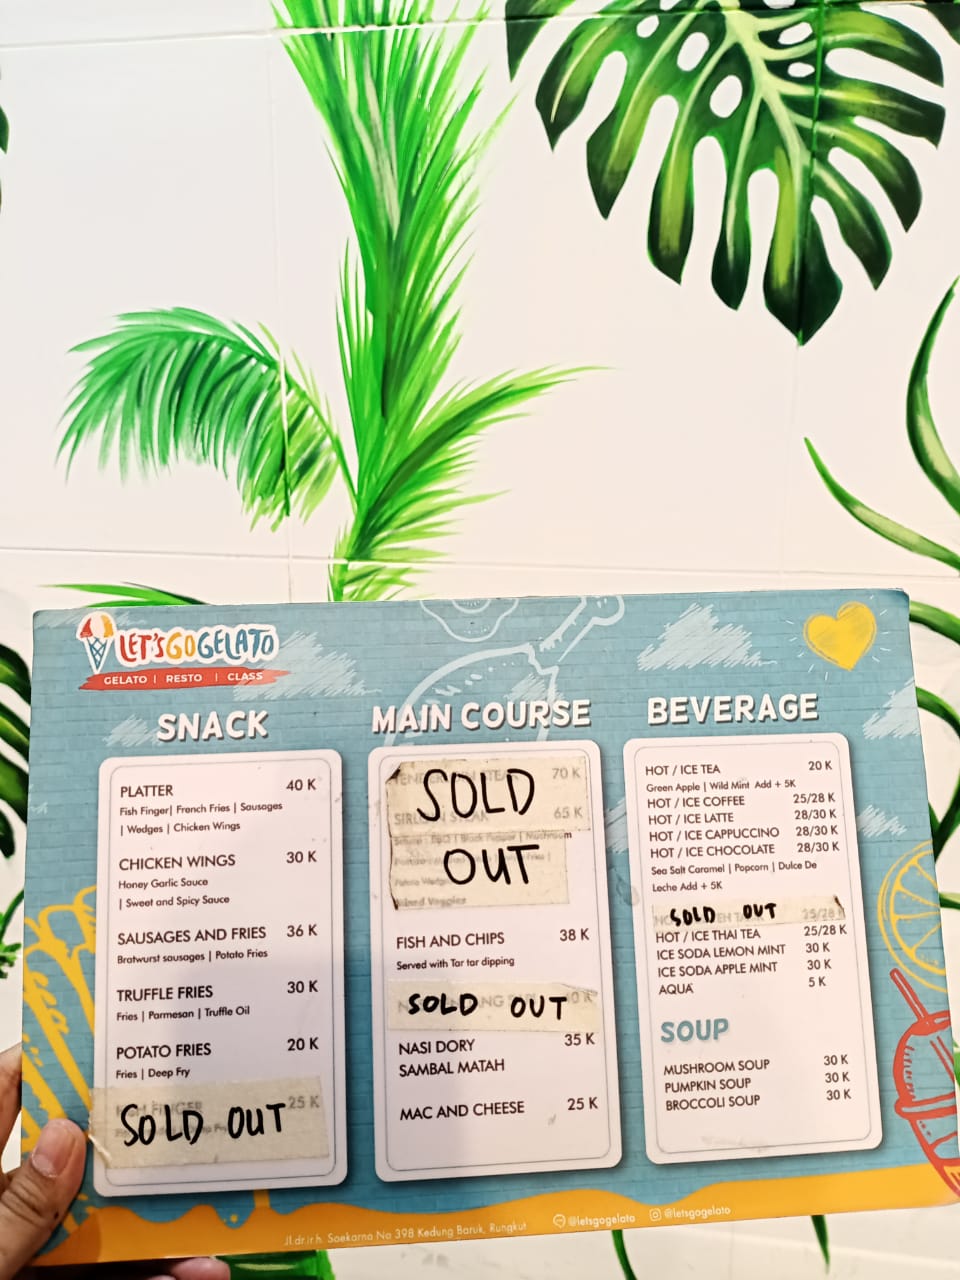 LET'S GO GELATO
GELATO | RESTO | CLASS
SNACK
PLATTER 40 K
Fish Finger| French Fries | Sausages
| Wedges | Chicken Wings
CHICKEN WINGS 30 K
Honey Garlic Sauce
| Sweet and Spicy Sauce
SAUSAGES AND FRIES 36 K
Bratwurst sausages | Potato Fries
TRUFFLE FRIES 30 K
Fries | Parmesan | Truffle Oil
POTATO FRIES 20 K
Fries | Deep Fry
25 K
SOLD OUT
MAIN COURSE
70 K
SOLD
65 K
OUT
FISH AND CHIPS 38 K
Served with Tar tar dipping
SOLD OUT
NASI DORY 35 K
SAMBAL MATAH
MAC AND CHEESE 25 K
BEVERAGE
HOT / ICE TEA 20 K
Green Apple | Wild Mint Add + 5K
HOT / ICE COFFEE 25/28 K
HOT / ICE LATTE 28/30 K
HOT / ICE CAPPUCCINO 28/30 K
HOT / ICE CHOCOLATE 28/30 K
Sea Salt Caramel | Popcorn | Dulce De
Leche Add + 5K
SOLD OUT 25/28 K
HOT / ICE THAI TEA 25/28 K
ICE SODA LEMON MINT 30 K
ICE SODA APPLE MINT 30 K
AQUA 5 K
SOUP
MUSHROOM SOUP 30 K
PUMPKIN SOUP 30 K
BROCCOLI SOUP 30 K
Jl.dr.ir.h. Soekarno No 398 Kedung Baruk, Rungkut @letsgogelato @letsgogelato